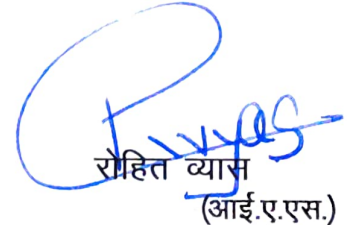 रोहित व्यास
(आई.ए.एस.)